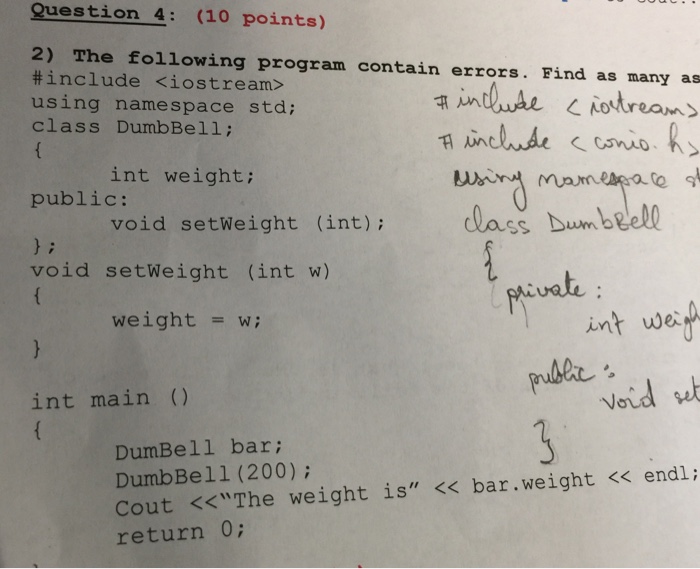 Question 4: (10 points)
2) The following program contain errors. Find as many as
#include <iostream>
using namespace std;
class DumbBell;
{
int weight;
public:
void setWeight (int);
};
void setWeight (int w)
{
weight = w;
}
int main ()
{
DumBell bar;
DumbBell(200);
Cout <<"The weight is" << bar.weight << endl;
return 0;
# include <iostream>
# include <conio.h>
using namespace
class DumbBell
{
private :
int weigh
public :
void set
}